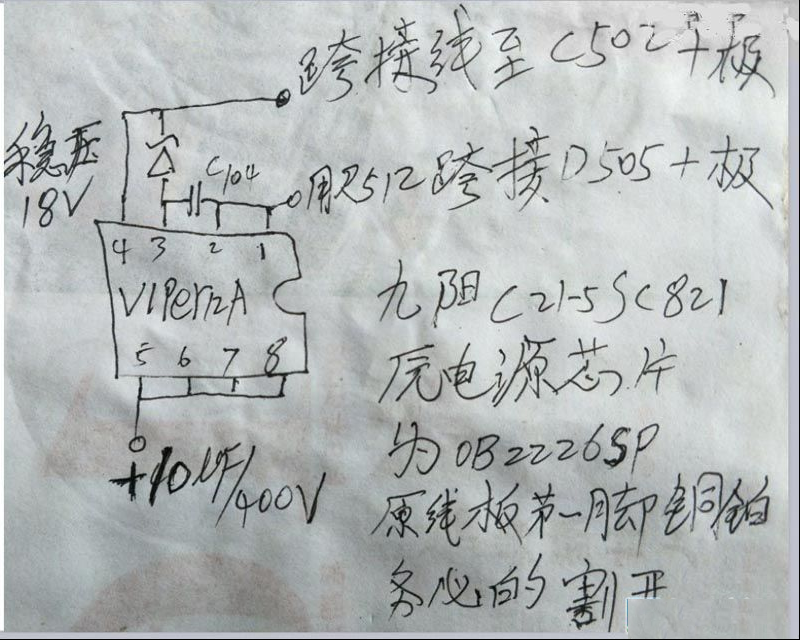 跨接线至C502+极
稳压
18V
C104
用R512跨接D505+极
4 3 2 1
VIPer12A
5 6 7 8
+10μF/400V
九阳C21-SC821
原电源芯片
为OB2226SP
原线板第一脚铜铂
务必的割开